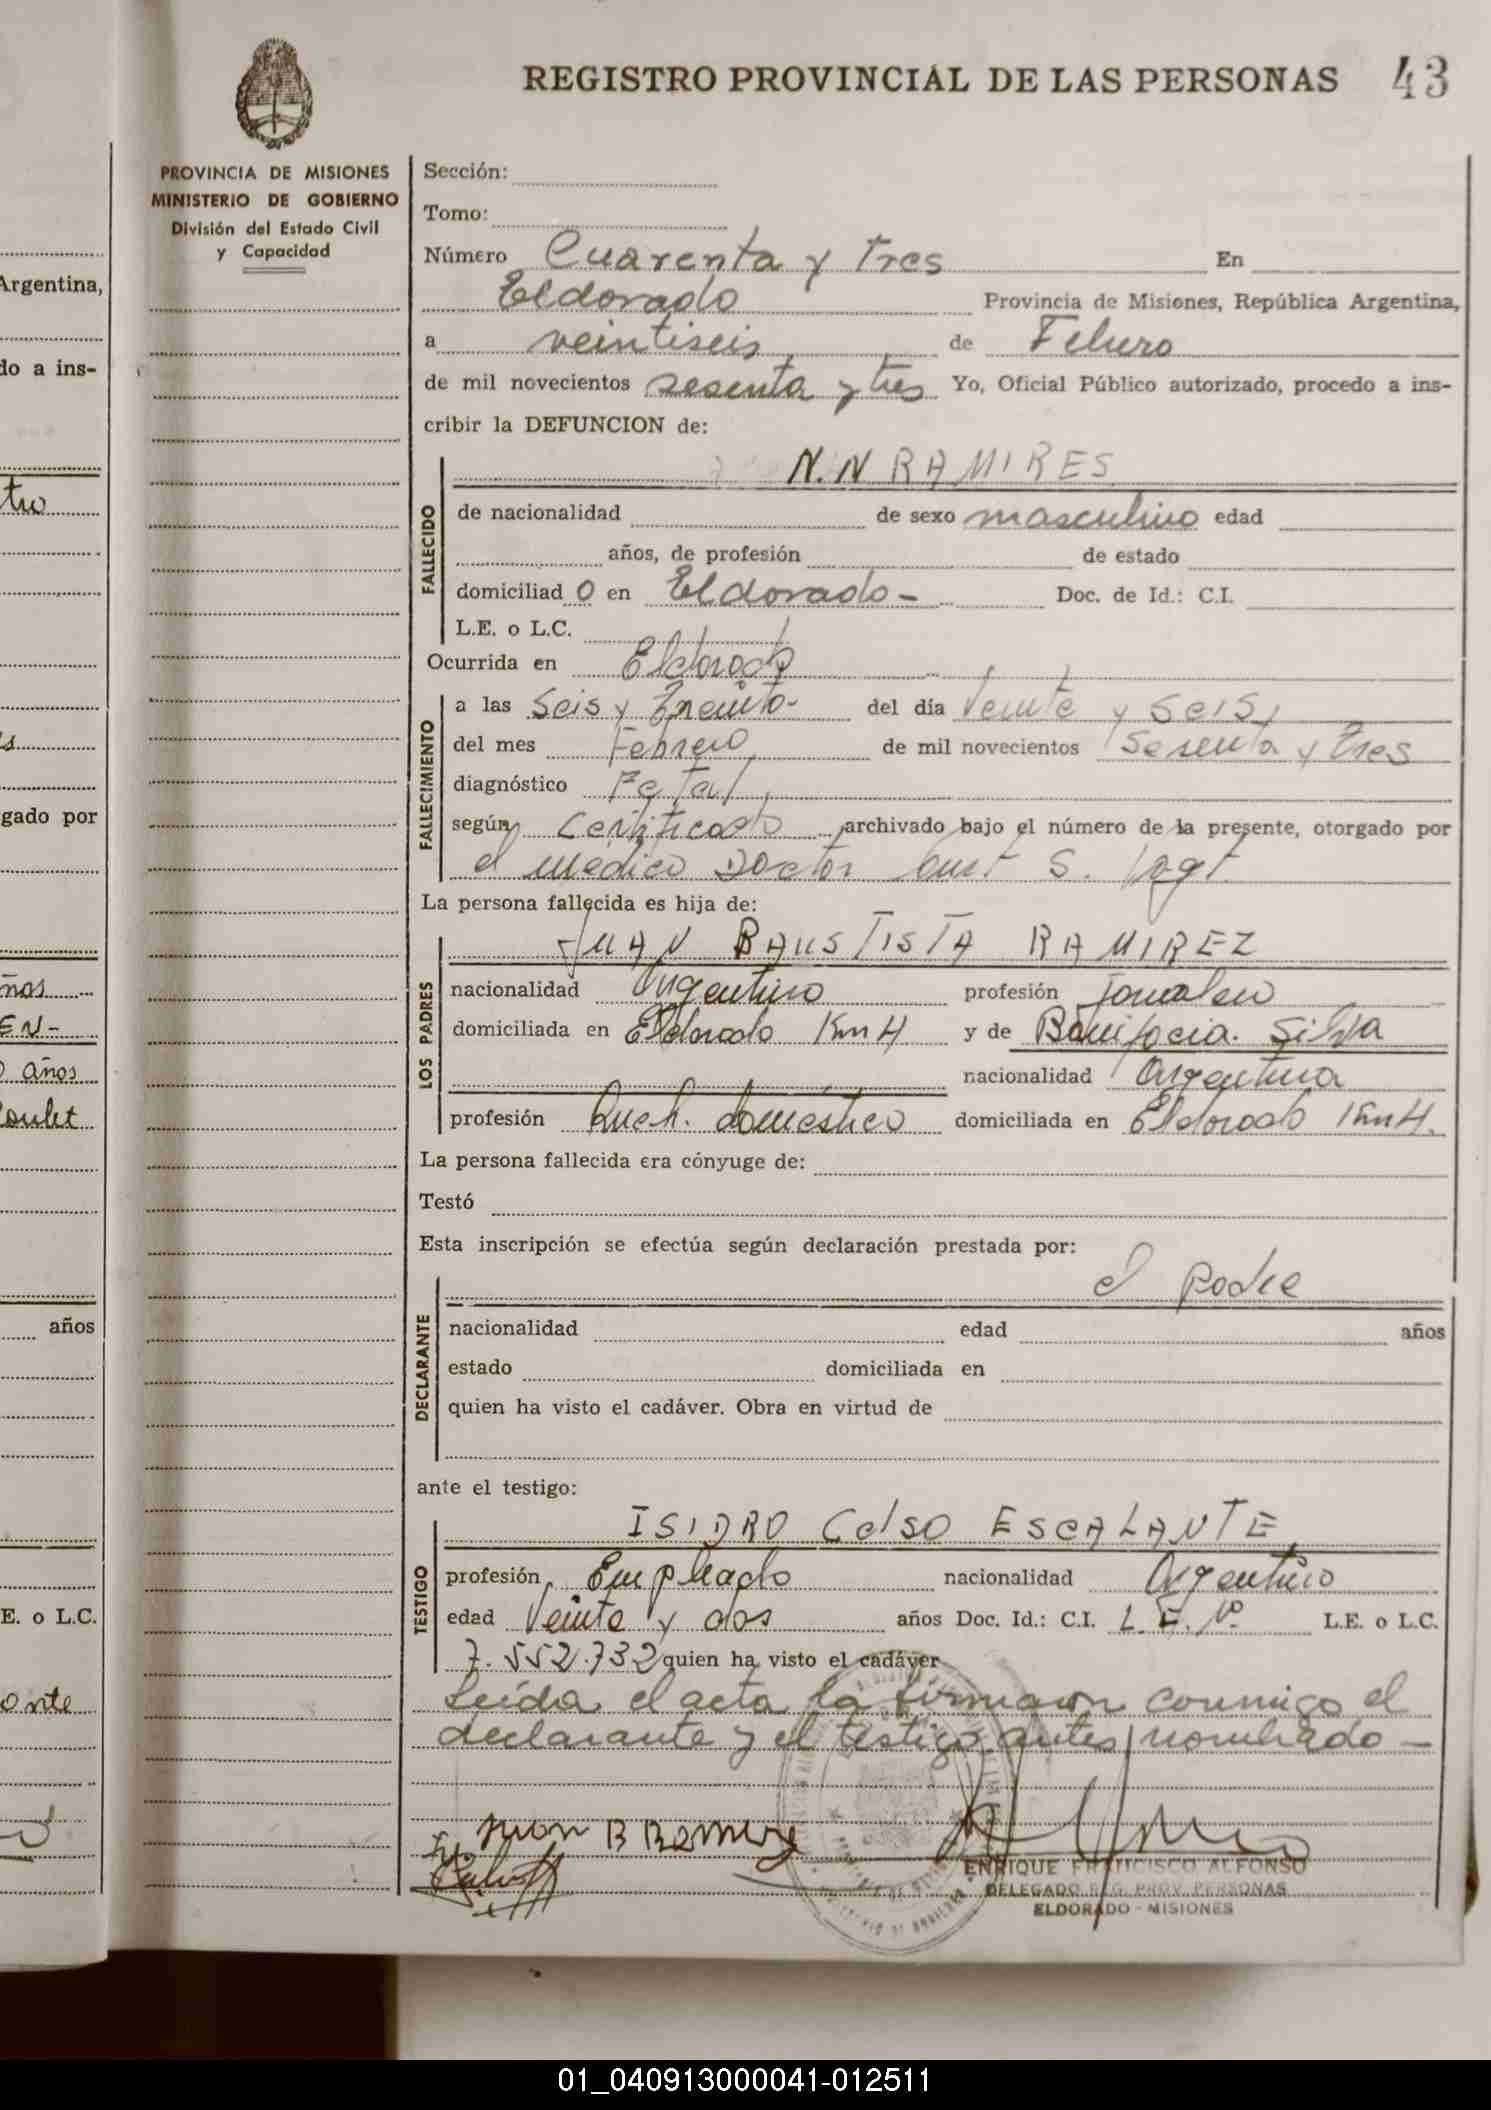 REGISTRO PROVINCIAL DE LAS PERSONAS 43
PROVINCIA DE MISIONES
MINISTERIO DE GOBIERNO
División del Estado Civil
y Capacidad
Sección:
Tomo:
Número Cuarenta y Tres En
Eldorado Provincia de Misiones, República Argentina,
a veintiseis de Febrero
de mil novecientos sesenta y tres Yo, Oficial Público autorizado, procedo a ins-
cribir la DEFUNCION de:
N.N RAMIRES
FALLECIDO
de nacionalidad de sexo masculino edad
años, de profesión de estado
domiciliad o en Eldorado - Doc. de Id.: C.I.
L.E. o L.C.
Ocurrida en Eldorado
FALLECIMIENTO
a las Seis y Treinta- del día Veinte y Seis,
del mes Febrero de mil novecientos Sesenta y Tres
diagnóstico Fetal,
según Certificado archivado bajo el número de la presente, otorgado por
el Medico Doctor S. Vogt
La persona fallecida es hija de:
JUAN BAUSTISTA RAMIREZ
LOS PADRES
nacionalidad Argentino profesión Jornalero
domiciliada en Eldorado Km 4 y de Bonifacia Silva
nacionalidad Argentina
profesión Queh. doméstico domiciliada en Eldorado Km 4.
La persona fallecida era cónyuge de:
Testó
Esta inscripción se efectúa según declaración prestada por:
el Padre
DECLARANTE
nacionalidad edad años
estado domiciliada en
quien ha visto el cadáver. Obra en virtud de
ante el testigo:
ISIDRO Celso ESCALANTE
TESTIGO
profesión, Empleado nacionalidad Argentino
edad Veinte y dos años Doc. Id.: C.I. L.E. Nº L.E. o L.C.
7.552.732 quien ha visto el cadáver
Leída el acta la firmaron conmigo el
declarante y el testigo antes nombrado -
Juan B Ramirez
ENRIQUE FRANCISCO ALFONSO
DELEGADO REG. PROV. PERSONAS
ELDORADO - MISIONES
Argentina,
do a ins-
gado por
años
EN-
años
años
E. o L.C.
onte
01_040913000041-012511